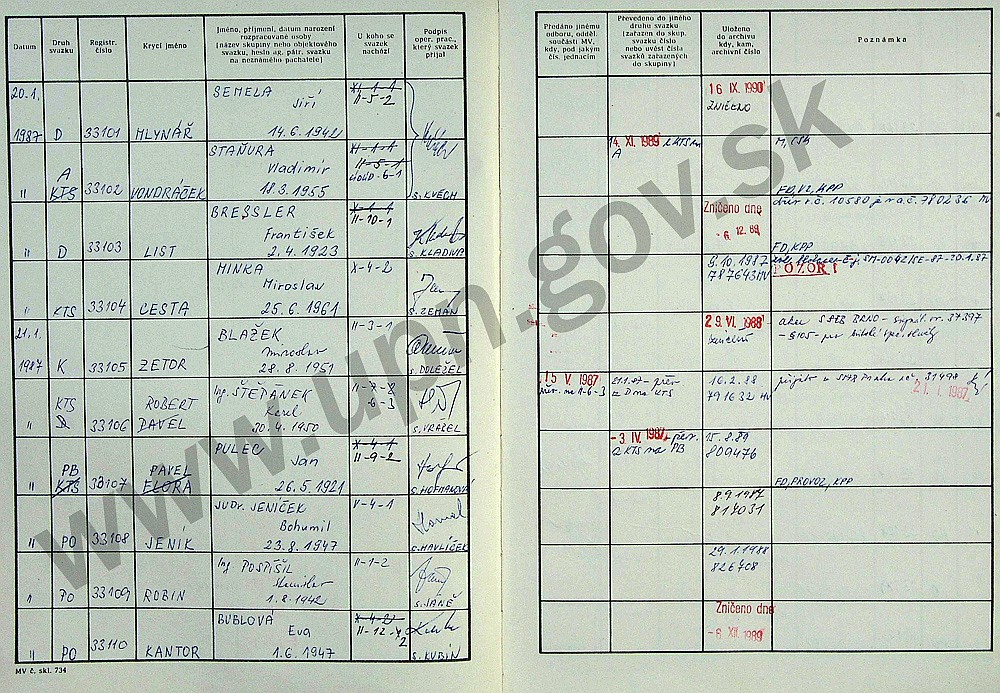 Datum
Druh svazku
Registr. číslo
Krycí jméno
Jméno, příjmení, datum narození
rozpracované osoby
(název skupiny nebo objektového
svazku, heslo ag. pátr. svazku
na neznámého pachatele)
U koho se
svazek
nachází
Podpis
oper. prac.,
který svazek
přijal
Předáno jinému
odboru, odděl.
součásti MV,
kdy, pod jakým
čís. jednacím
Převedeno do jiného
druhu svazku
(zařazen do skup.
svazku číslo
nebo uvést čísla
svazků zařazených
do skupiny)
Uloženo
do archivu
kdy, kam,
archivní číslo
Poznámka
20.1.
1987 D 33101 MLYNÁŘ
SEMELA
Jiří
14.6.1942
XI-1-1
II-5-2
16 IX. 1990
ZNIČENO
A
" KTS 33102 VONDRÁČEK
STAŇURA
Vladimír
18.3.1955
XI-1-1
II-5-1
S. KVĚCH
14. XI. 1989
A
M, ČSH
FD, VZ, KPP
" D 33103 LIST
BRESSLER
František
2.4.1923
X-1-1
II-10-1
S. KLADIVA
Zničeno dne
-6. 12. 89
10580 780236 MV
FD, KPP
" KTS 33104 CESTA
MINKA
Miroslav
25.6.1961
X-4-2
S. ZEMAN
9.10.1987
787643 MV
SM-0042/SE-87-20.1.87
POZOR!
21.1.
1987 K 33105 ZETOR
BLAŽEK
Miroslav
28.8.1951
II-3-1
S. DOLEŽEL
29. VI. 1988
akce SStB BRNO - 37397
-§105-
KTS ROBERT
" D 33106 PAVEL
Ing. ŠTĚPÁNEK
Karel
20.4.1950
II-7-8
-6-3
S. VRAŽEL
15 V. 1987
21.1.87 - přev.
z D na KTS
16.2.88
791632 MV
SNB Praha 31498
21. I. 1987
PB PAVEL
" KTS 33107 FLORA
PULEC
Jan
26.5.1921
X-4-1
II-9-2
S. HOFMANOVÁ
-3. IV. 1987 přev.
z KTS na PB
15.8.89
809476
FD, PROVOZ, KPP
" PO 33108 JENÍK
JUDr. JENÍČEK
Bohumil
23.8.1947
V-4-1
S. HAVLÍČEK
8.9.1987
817031
" PO 33109 ROBIN
Ing POSPÍŠIL
Stanislav
1.8.1942
II-1-2
S. JANĚ
29.1.1988
826708
" PO 33110 KANTOR
BUBLOVÁ
Eva
1.6.1947
X-4-2
II-12-2
S. KUBÍN
Zničeno dne
-6. XII. 1989
MV č. skl. 734
www.upn.gov.sk